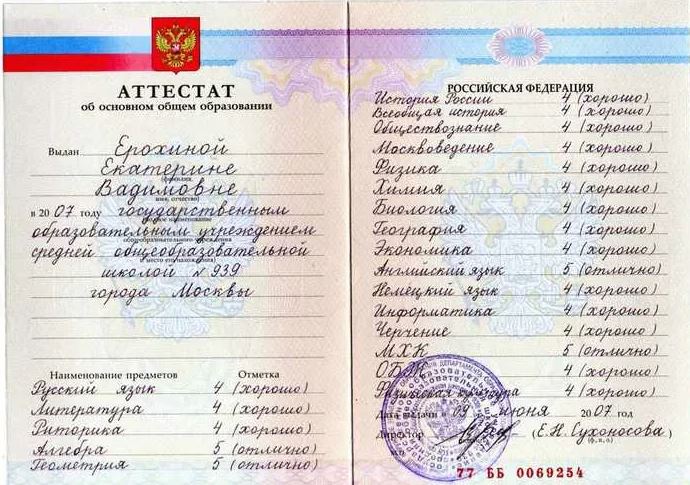 АТТЕСТАТ
об основном общем образовании
Выдан Ерохиной
Екатерине
(фамилия,
Вадимовне
имя, отчество)
в 2007 году государственным
образовательным учреждением
средней общеобразовательной
школой №939
города Москвы
Наименование предметов Отметка
Русский язык 4 (хорошо)
Литература 4 (хорошо)
Риторика 4 (хорошо)
Алгебра 5 (отлично)
Геометрия 5 (отлично)
РОССИЙСКАЯ ФЕДЕРАЦИЯ
История России 4 (хорошо)
Всеобщая история 4 (хорошо)
Обществознание 4 (хорошо)
Москвоведение 4 (хорошо)
Физика 4 (хорошо)
Химия 4 (хорошо)
Биология 4 (хорошо)
География 4 (хорошо)
Экономика 4 (хорошо)
Английский язык 5 (отлично)
Немецкий язык 4 (хорошо)
Информатика 4 (хорошо)
Черчение 4 (хорошо)
МХК 5 (отлично)
ОБЖ 4 (хорошо)
Физическая культура 4 (хорошо)
Дата выдачи 09 июня 2007 год
Директор (Е.Н. Сухоносова)
(ф., и., о.)
77 ББ 0069254